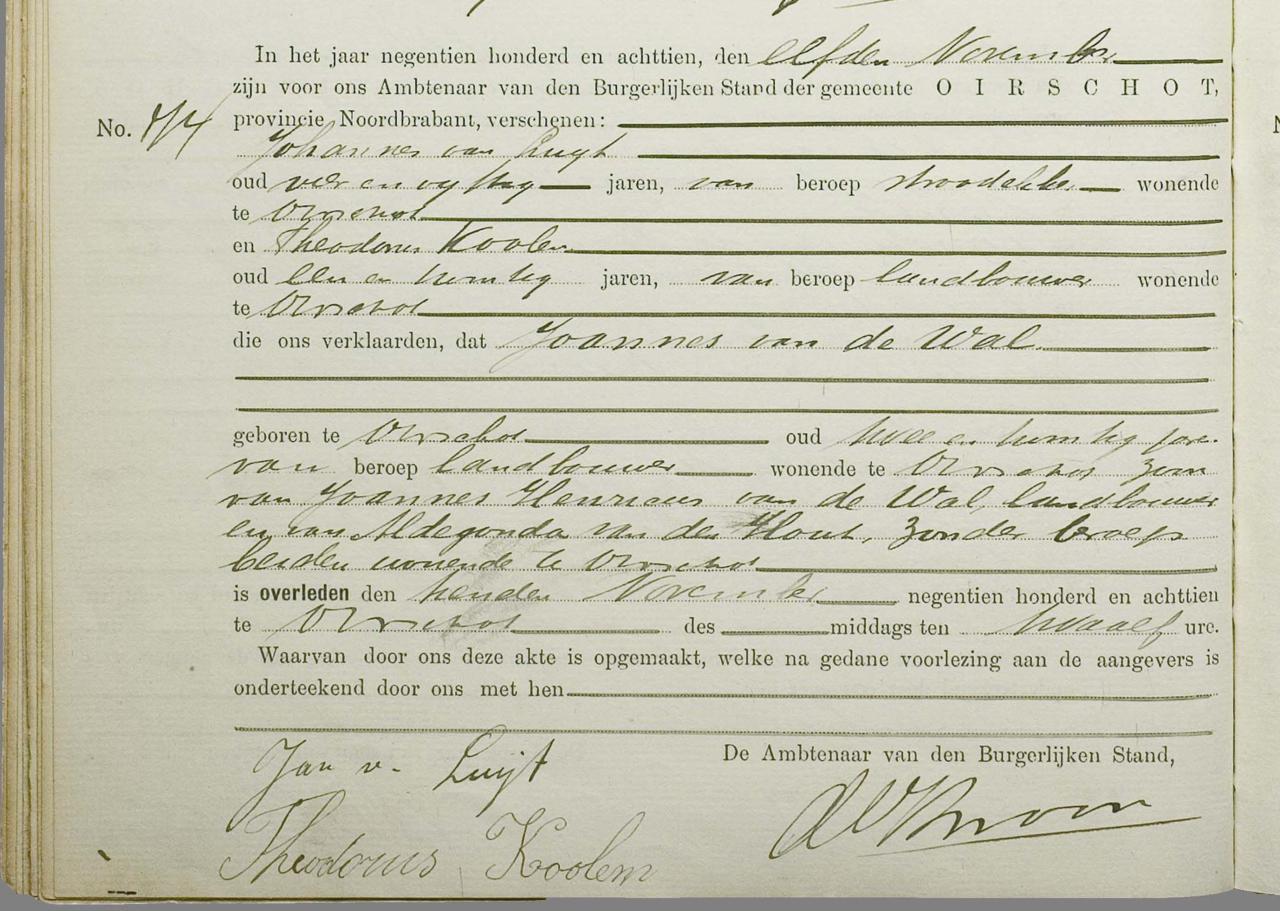 In het jaar negentien honderd en achttien, den elfden November
zijn voor ons Ambtenaar van den Burgerlijken Stand der gemeente OIRSCHOT,
No. provincie Noordbrabant, verschenen:
Johannes van Luyt
oud vier en vyftig jaren, van beroep stroodekker wonende
te Oirschot
en Theodorus Koolen
oud een en twintig jaren, van beroep landbouwer wonende
te Oirschot
die ons verklaarden, dat Joannes van de Wal
geboren te Oirschot oud twee en twintig jare
van beroep landbouwer wonende te Oirschot zoon
van Joannes Henricus van de Wal, landbouwer
en van Aldegonda van den Hout, zonder beroep
beiden wonende te Oirschot
is overleden den tienden November negentien honderd en achttien
te Oirschot des middags ten twaalf ure.
Waarvan door ons deze akte is opgemaakt, welke na gedane voorlezing aan de aangevers is
onderteekend door ons met hen
De Ambtenaar van den Burgerlijken Stand,
Jan v. Luijt
Theodorus Koolen